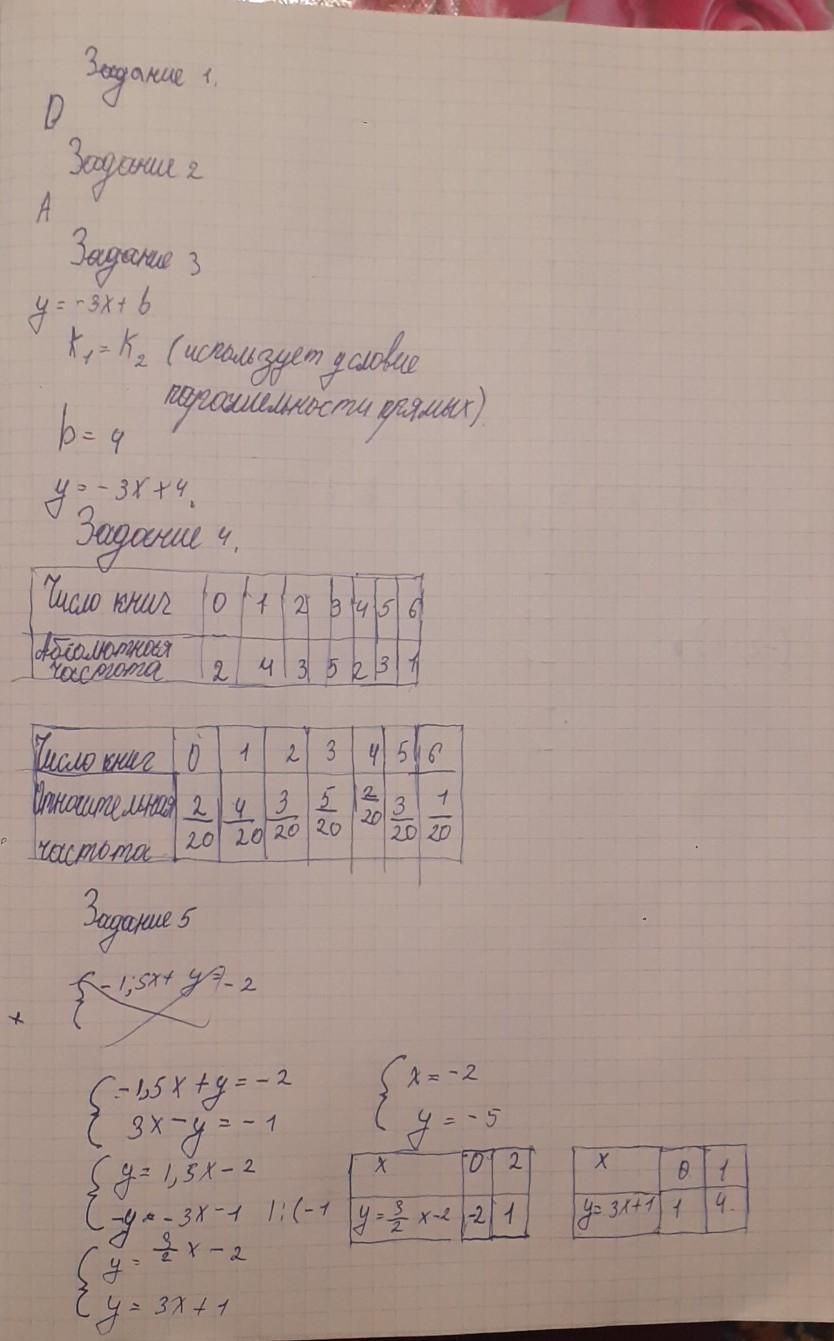 Задание 1.
D
Задание 2
A
Задание 3
y = -3x + b
K₁ = K₂ (использует условие
паралельности прямых)
b = 4
y = -3x + 4.
Задание 4.
Число книг 0 1 2 3 4 5 6
Абсолютная частота 2 4 3 5 2 3 1
Число книг 0 1 2 3 4 5 6
Относительная частота 2/20 4/20 3/20 5/20 2/20 3/20 1/20
Задание 5
{ -1,5x + y = -2
+
{ -1,5x + y = -2
3x - y = -1
{ y = 1,5x - 2
-y = -3x - 1 |:(-1
{ y = 3/2 x - 2
y = 3x + 1
{ x = -2
y = -5
x 0 2
y = 3/2 x - 2 -2 1
x 0 1
y = 3x + 1 1 4.